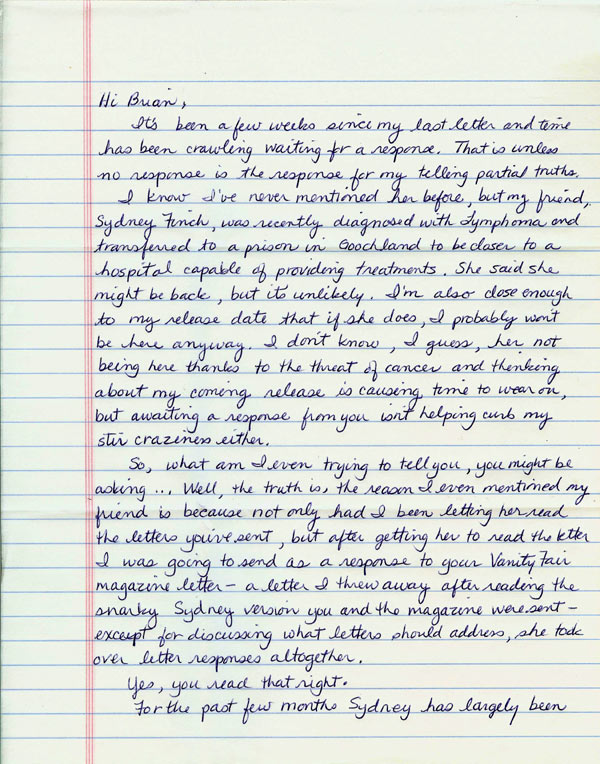 Hi Brian,
It's been a few weeks since my last letter and time
has been crawling waiting for a response. That is unless
no response is the response for my telling partial truths.
I know I've never mentioned her before, but my friend,
Sydney Finch, was recently diagnosed with Lymphoma and
transferred to a prison in Goochland to be closer to a
hospital capable of providing treatments. She said she
might be back, but it's unlikely. I'm also close enough
to my release date that if she does, I probably won't
be here anyway. I don't know, I guess, her not
being here thanks to the threat of cancer and thinking
about my coming release is causing time to wear on,
but awaiting a response from you isn't helping curb my
stir craziness either.
So, what am I even trying to tell you, you might be
asking... Well, the truth is, the reason I even mentioned my
friend is because not only had I been letting her read
the letters you've sent, but after getting her to read the letter
I was going to send as a response to your Vanity Fair
magazine letter - a letter I threw away after reading the
snarky Sydney version you and the magazine were sent -
except for discussing what letters should address, she took
over letter responses altogether.
Yes, you read that right.
For the past few months Sydney has largely been